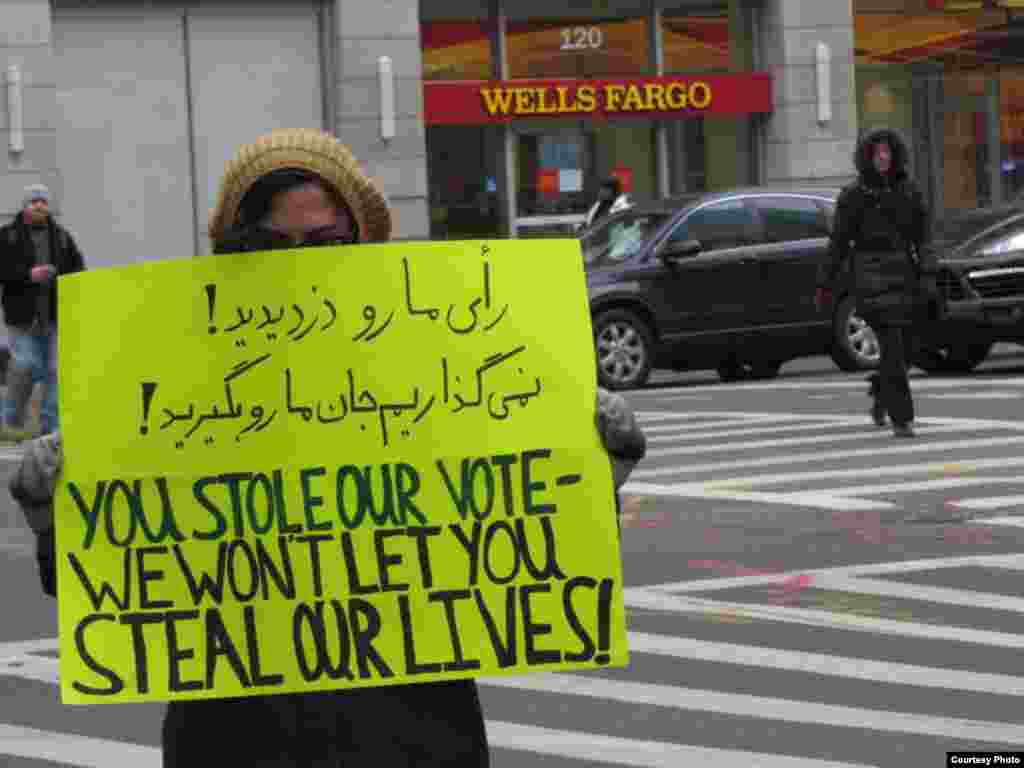 120
WELLS FARGO
رأی ما رو دزدیدید!
نمی گذاریم جان ما رو بگیرید!
YOU STOLE OUR VOTE-
WE WON'T LET YOU
STEAL OUR LIVES!
Courtesy Photo